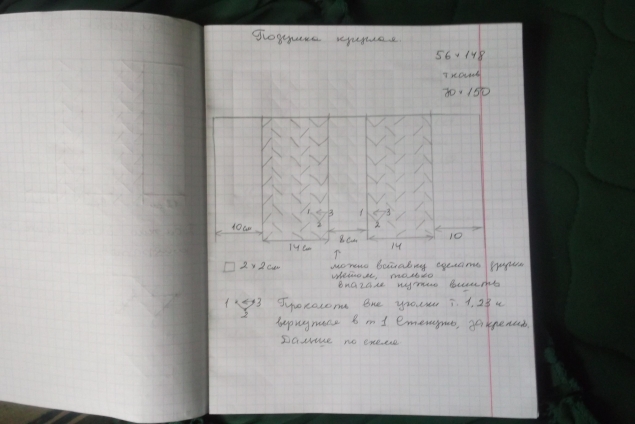 Подушка круглая
56 × 148
ткань
70 × 150
1 3
2
1 3
2
10см
8см
10
14см
14
2 × 2см
можно вставку сделать другим
цветом, только
вначале нужно вшить
1 3
2
Проколоть все уголки т. 1,23 и
вернуться в т 1 Стянуть, закрепить.
Дальше по схеме